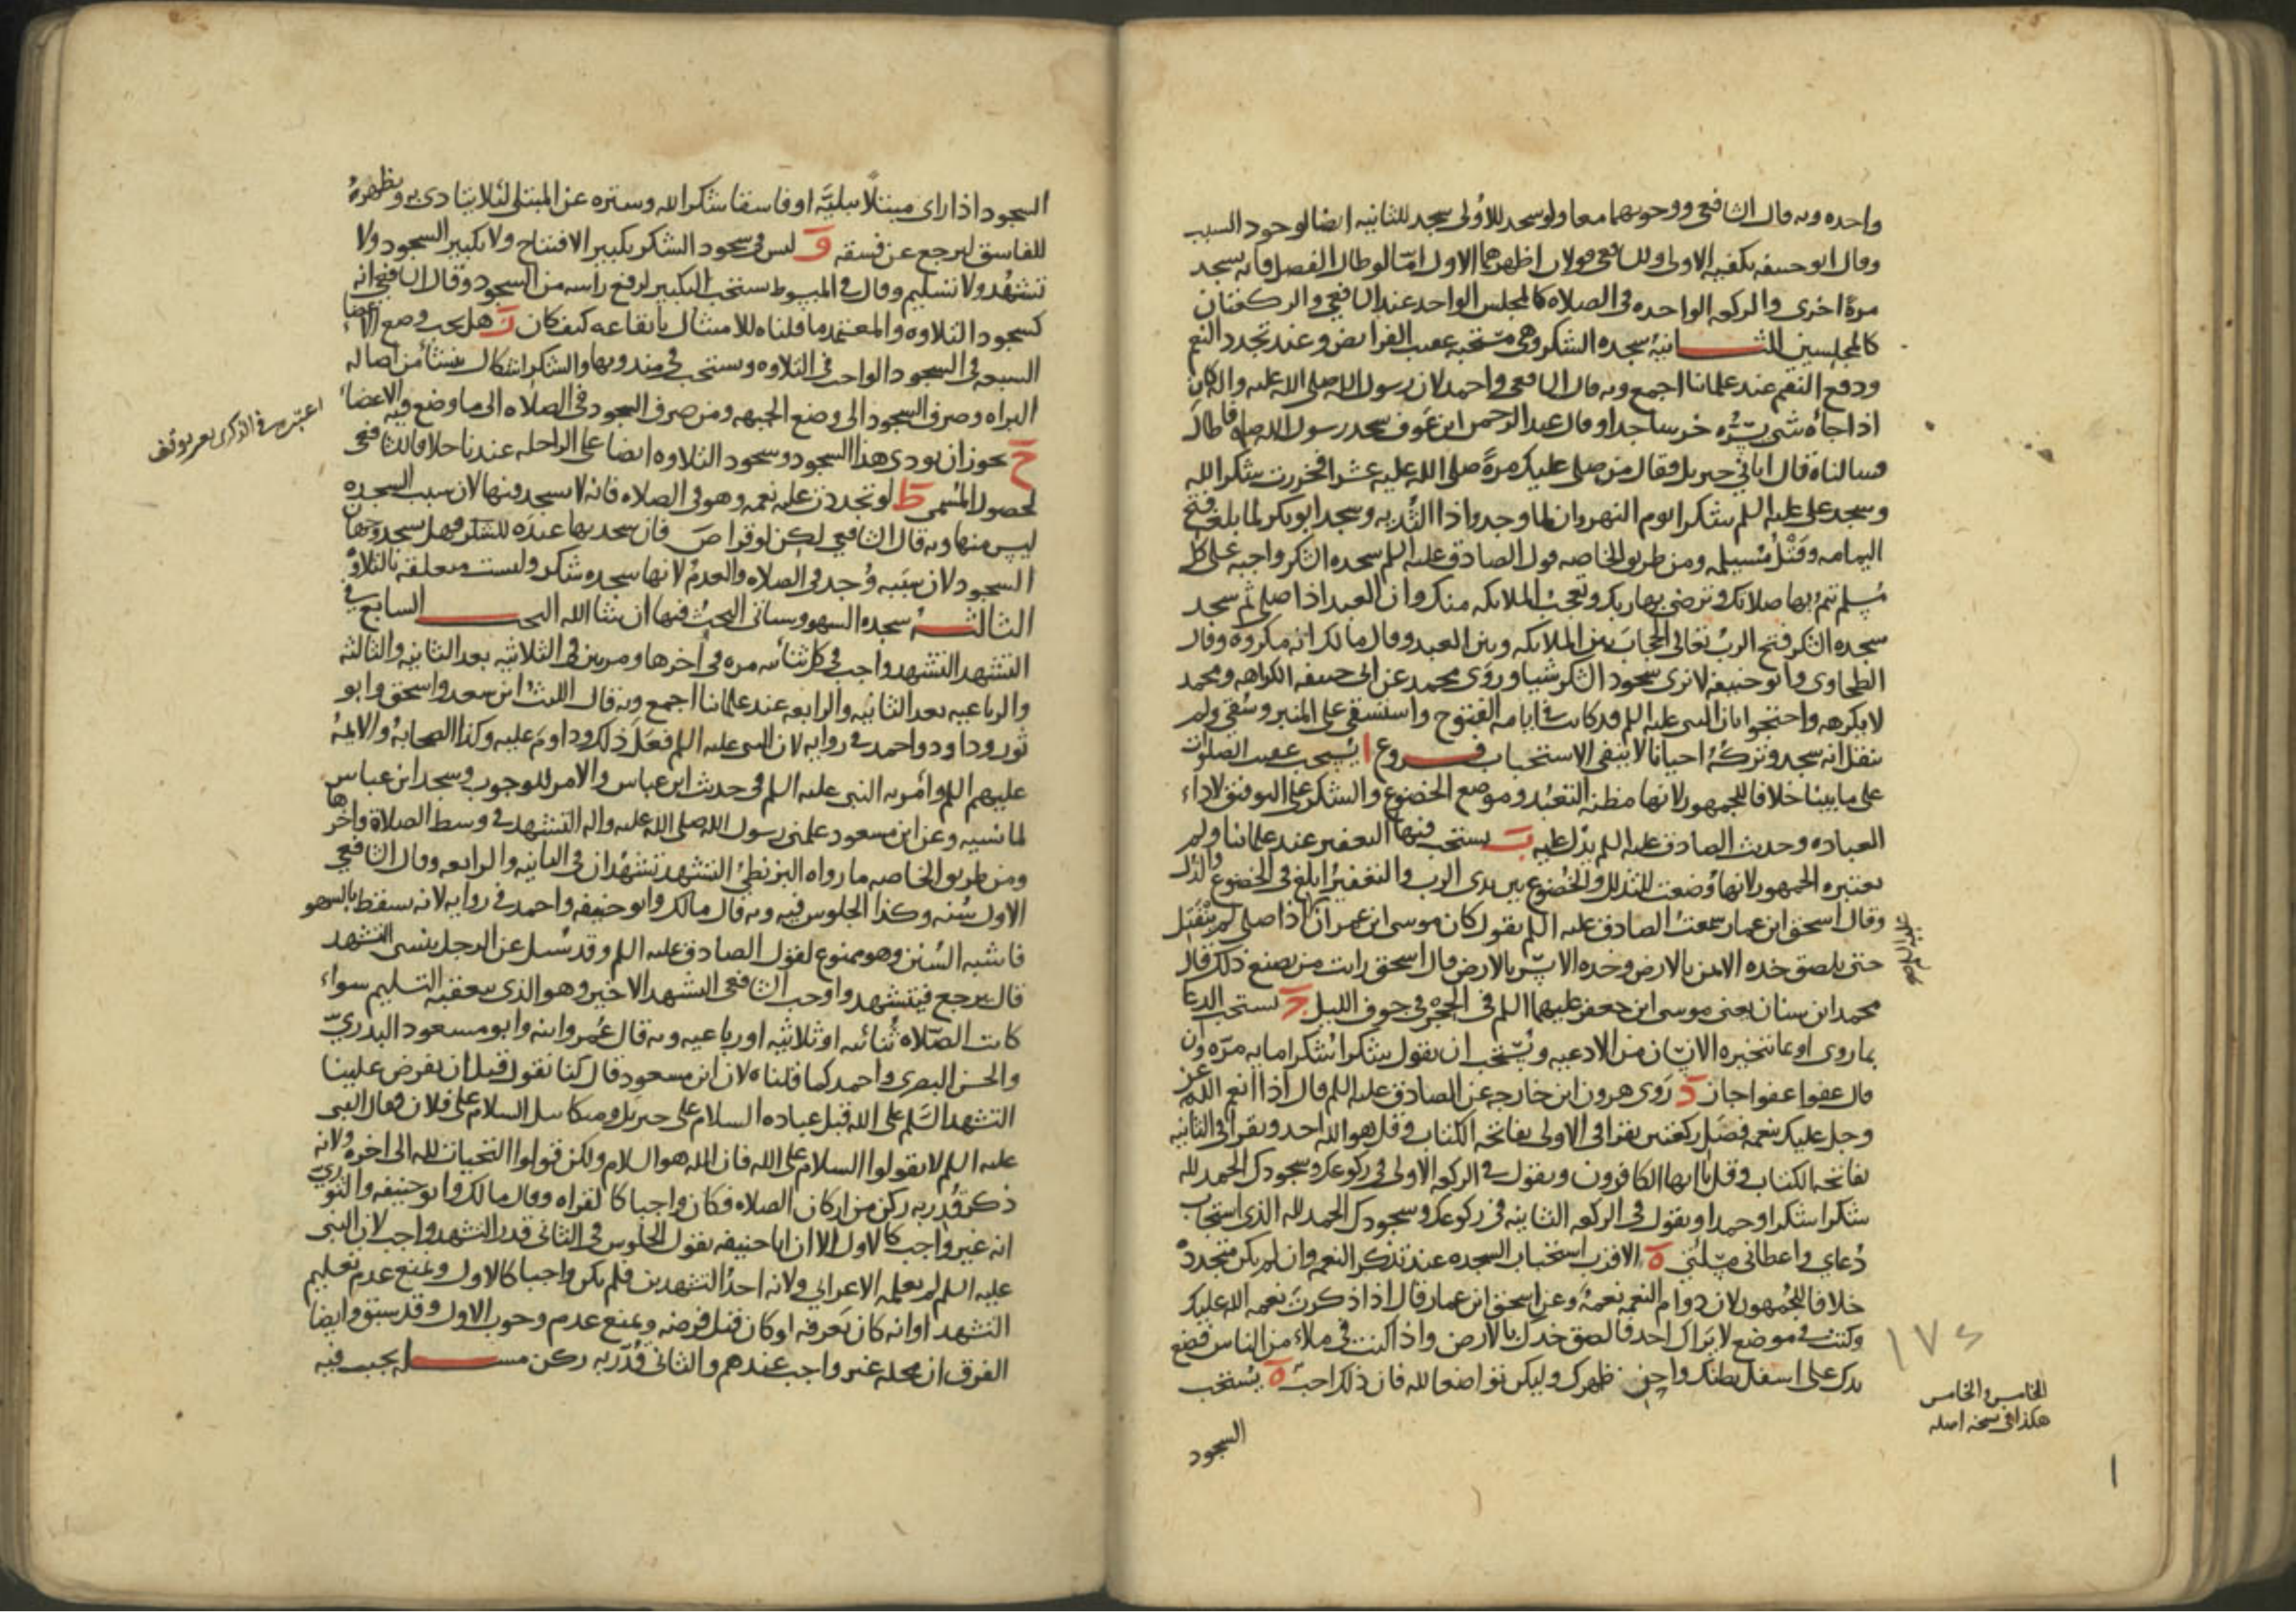 واحده وبه قال الشافعي ووجوبهما معا ولو سجد للاولى سجد للثانيه ايضا لوجود السبب
وقال ابو حنيفه يكفيه الاولى وللشافعي قولان اظهرهما الاول امّا لو طال الفصل فانه يسجد
مرة اخرى والركعه الواحده في الصلاه كالمجلس الواحد عند الشافعي والركعتان
كالمجلسين الثانيه سجده الشكر وهي مستحبه عقيب الفرايض وعند تجدد النعم
ودفع النقم عند علمائنا اجمع وبه قال الشافعي واحمد لان رسول الله صلى الله عليه واله كان
اذا جاءه شي يسّره خر ساجدا وقال عبد الرحمن ابن عوف سجد رسول الله صلى الله فاطال
فسالناه قال اتاني جبريل فقال من صلى عليك مرة صلى الله عليه عشرا فخررت شكرا لله
وسجد علي عليه السلم شكرا يوم النهروان لما وجدوا ذا الثديه وسجد ابو بكر لما بلغه فتح
اليمامه وقتل مسيلمه ومن طريق الخاصه قول الصادق عليه السلم سجده الشكر واجبه على كل
مسلم تتم بها صلاتك وترضي بها ربك وتعجب الملائكه منك وان العبد اذا صلى ثم سجد
سجده الشكر فتح الرب تعالى الحجاب بين الملائكه وبين العبد وقال مالك انه مكروه وقال
الطحاوي وابو حنيفه لا نرى سجود الشكر شيا وروى محمد عن ابي حنيفه الكراهه ومحمد
لا يكرهه واحتجوا بان النبي عليه السلم قد كانت في ايامه الفتوح واستسقى على المنبر وسُقي ولم
ينقل انه سجد وتركه احيانا لا ينفي الاستحباب فروع ا يستحب عقيب الصلوات
على ما بينا خلافا للجمهور لانها مظنه التعبد وموضع الخضوع والشكر على التوفيق لاداء
العباده وحديث الصادق عليه السلم يدل عليه ب يستحب فيها التعفير عند علمائنا ولم
يعتبره الجمهور لانها وضعت للتذلل والخضوع بين يدي الرب والتعفير ابلغ في الخضوع والذل
وقال اسحق ابن عمار سمعت الصادق عليه السلم يقول كان موسى ابن عمران اذا صلى لم ينفتل
عليه السلم
حتى يلصق خده الايمن بالارض وخده الايسر بالارض قال اسحق رايت من يصنع ذلك قال
محمد ابن سنان يعني موسى ابن جعفر عليهما السلم في الحجر في جوف الليل ج يستحب الدعا
بما روي او بما يتخيره الانسان من الادعيه ويستحب ان يقول شكرا شكرا مايه مرّه وان
قال عفوا عفوا جاز د روى هرون ابن خارجه عن الصادق عليه السلم قال اذا انعم الله عز
وجل عليك بنعمه فصل ركعتين تقرا في الاولى بفاتحه الكتاب وقل هو الله احد وتقرا في الثانيه
بفاتحه الكتاب وقل يا ايها الكافرون وتقول في الركعه الاولى في ركوعك وسجودك الحمد لله
شكرا شكرا وحمدا وتقول في الركعه الثانيه في ركوعك وسجودك الحمد لله الذي استجاب
دُعاي واعطاني مسئلتي ه الاقرب استحباب السجده عند تذكر النعمه وان لم يكن متجدده
خلافا للجمهور لان دوام النعمه نعمه وعن اسحق ابن عمار قال اذا ذكرت نعمه الله عليك
وكنت في موضع لا يراك احد فالصق خدك بالارض واذا كنت في ملاء من الناس فضع
يدك على اسفل بطنك واحن ظهرك وليكن تواضعا لله فان ذلك احبّ ه يستحب
السجود
١٧٤
الخامس والخامس
هكذا في نسخه اصله
السجود اذا راى مبتلاً ببليّه او فاسقا شكرا لله وستره عن المبتلى لئلا يتاذى به ويظهره
للفاسق ليرجع عن فسقه و ليس في سجود الشكر تكبير الافتتاح ولا تكبير السجود ولا
تشهد ولا تسليم وقال في المبسوط يستحب التكبير لرفع راسه من السجود وقال الشافعي انه
كسجود التلاوه والمعتمد ما قلناه للامتثال بايقاعه كيف كان ز هل يجب وضع الاعضا
السبعه في السجود الواجب في التلاوه ويستحب في مندوبها والشكر اشكال ينشأ من اصاله
البراه وصرف السجود الى وضع الجبهه ومن صرف السجود في الصلاه الى ما وضع فيه الاعضا
ح يجوز ان يودى هذا السجود وسجود التلاوه ايضا على الراحله عندنا خلافا للشافعي
لحصول المسمى ط لو تجددت عليه نعمه وهو في الصلاه فانه لا يسجد فيها لان سبب السجده
ليس منها وبه قال الشافعي لكن لو قرا ص فان سجد بها عنده للشكر فهل يسجد وجهان
السجود لان سببه وُجد في الصلاه والعدم لانها سجده شكر وليست متعلقه بالتلاوة
الثالثه سجده السهو وسياتي البحث فيها ان شا الله البحث السابع في
التشهد التشهد واجب في كل ثنائيه مره في اخرها ومرتين في الثلاثيه بعد الثانيه والثالثه
والرباعيه بعد الثانيه والرابعه عند علمائنا اجمع وبه قال الليث ابن سعد واسحق وابو
ثور وداود واحمد في روايه لان النبي عليه السلم فعل ذلك وداوم عليه وكذا الصحابه والايمه
عليهم السلم وامر به النبي عليه السلم في حديث ابن عباس والامر للوجوب وسجد ابن عباس
لما نسيه وعن ابن مسعود علمني رسول الله صلى الله عليه واله التشهد في وسط الصلاة واخرها
ومن طريق الخاصه ما رواه البزنطي التشهد تشهدان في الثانيه والرابعه وقال الشافعي
الاول سُنه وكذا الجلوس فيه وبه قال مالك وابو حنيفه واحمد في روايه لانه يسقط بالسهو
فاشبه السنن وهو ممنوع لقول الصادق عليه السلم وقد سُئل عن الرجل ينسى التشهد
قال يرجع فيتشهد واوجب الشافعي التشهد الاخير وهو الذي يتعقبه التسليم سواء
كانت الصلاه ثُنائيه او ثلاثيه او رباعيه وبه قال عُمر وابنه وابو مسعود البدريّ
والحسن البصري واحمد كما قلناه لان ابن مسعود قال كنا نقول قبل ان يفرض علينا
التشهد السلم على الله قبل عباده السلام على جبريل وميكائيل السلام على فلان فقال النبي
عليه السلم لا تقولوا السلام على الله فان الله هو السلام ولكن قولوا التحيات لله الى اخره ولانه
ذكر قُدّر به ركن من اركان الصلاه فكان واجبا كالقراه وقال مالك وابو حنيفه والثوريّ
انه غير واجب كالاول الا ان ابا حنيفه يقول الجلوس في الثاني قدر التشهد واجب لان النبي
عليه السلم لم يعلمه الاعرابي ولانه احد التشهدين فلم يكن واجبا كالاول ويمنع عدم تعليم
التشهد او انه كان يعرفه او كان قبل فرضه ويمنع عدم وجوب الاول وقد سبق وايضا
الفرق ان محله غير واجب عندهم والثاني قُدّر به ركن مسئله يجب فيه
اعتبره في الذكرى بعد توقف